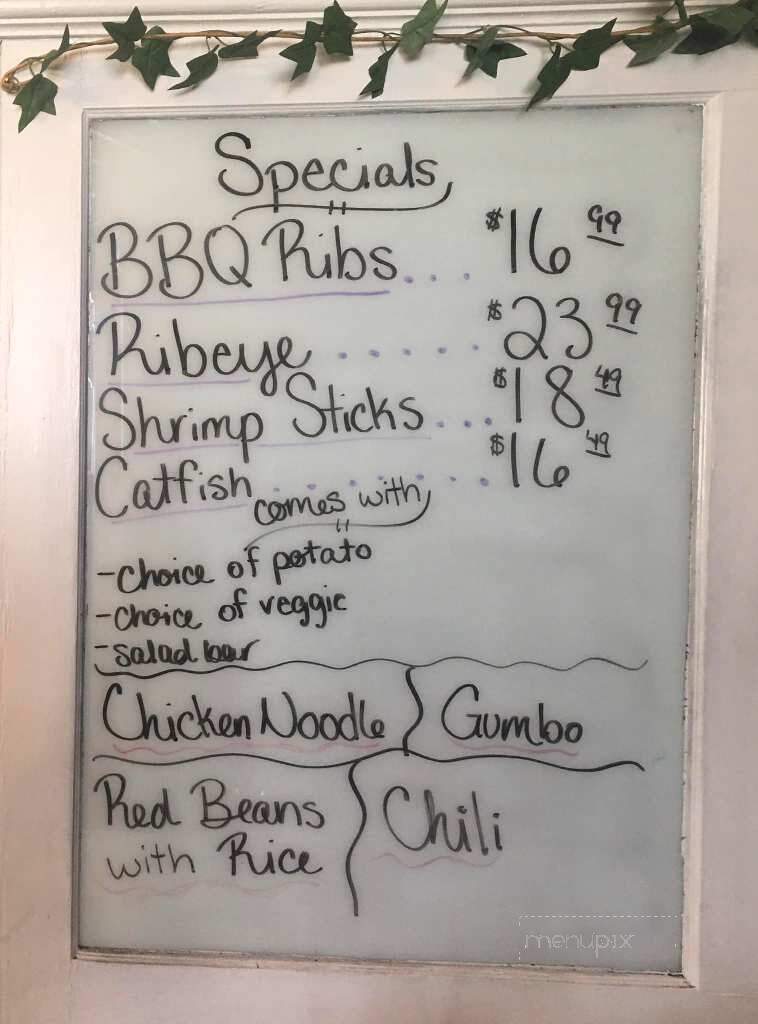 Specials
BBQ Ribs... $16.99
Ribeye ...... $23.99
Shrimp Sticks... $18.49
Catfish ....... $16.49
comes with
-choice of potato
-choice of veggie
-salad bar
Chicken Noodle Gumbo
Red Beans
with Rice
Chili
menupix